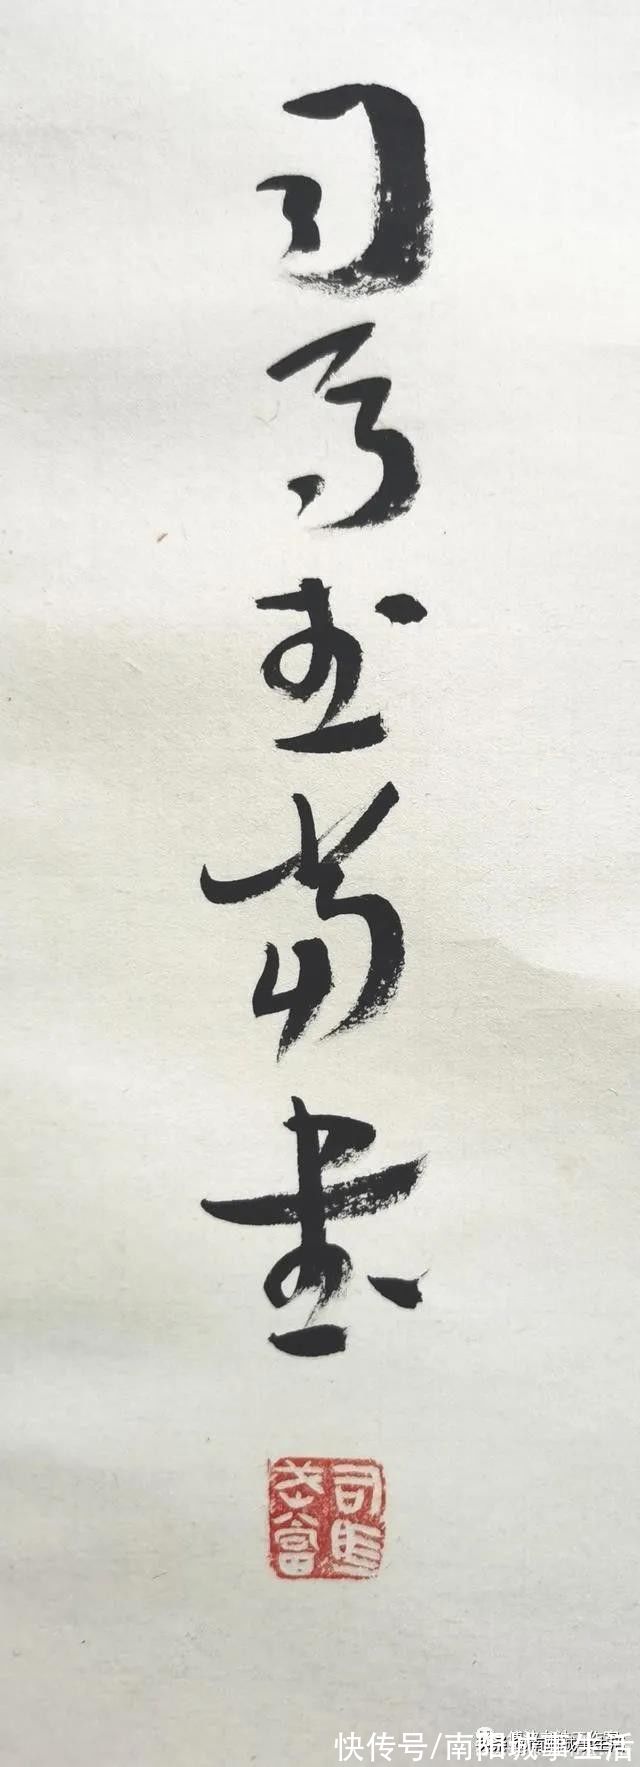 司马武当书
司馬武當
快传号/南阳城事生活